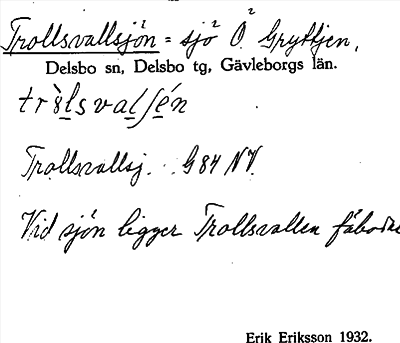 Trollsvallsjön = sjö Ö. Gryttjen,
Delsbo sn, Delsbo tg, Gävleborgs län.
Trollsvallsj. G84 NV.
Vid sjön ligger Trollsvallen fäbodar
Erik Eriksson 1932.